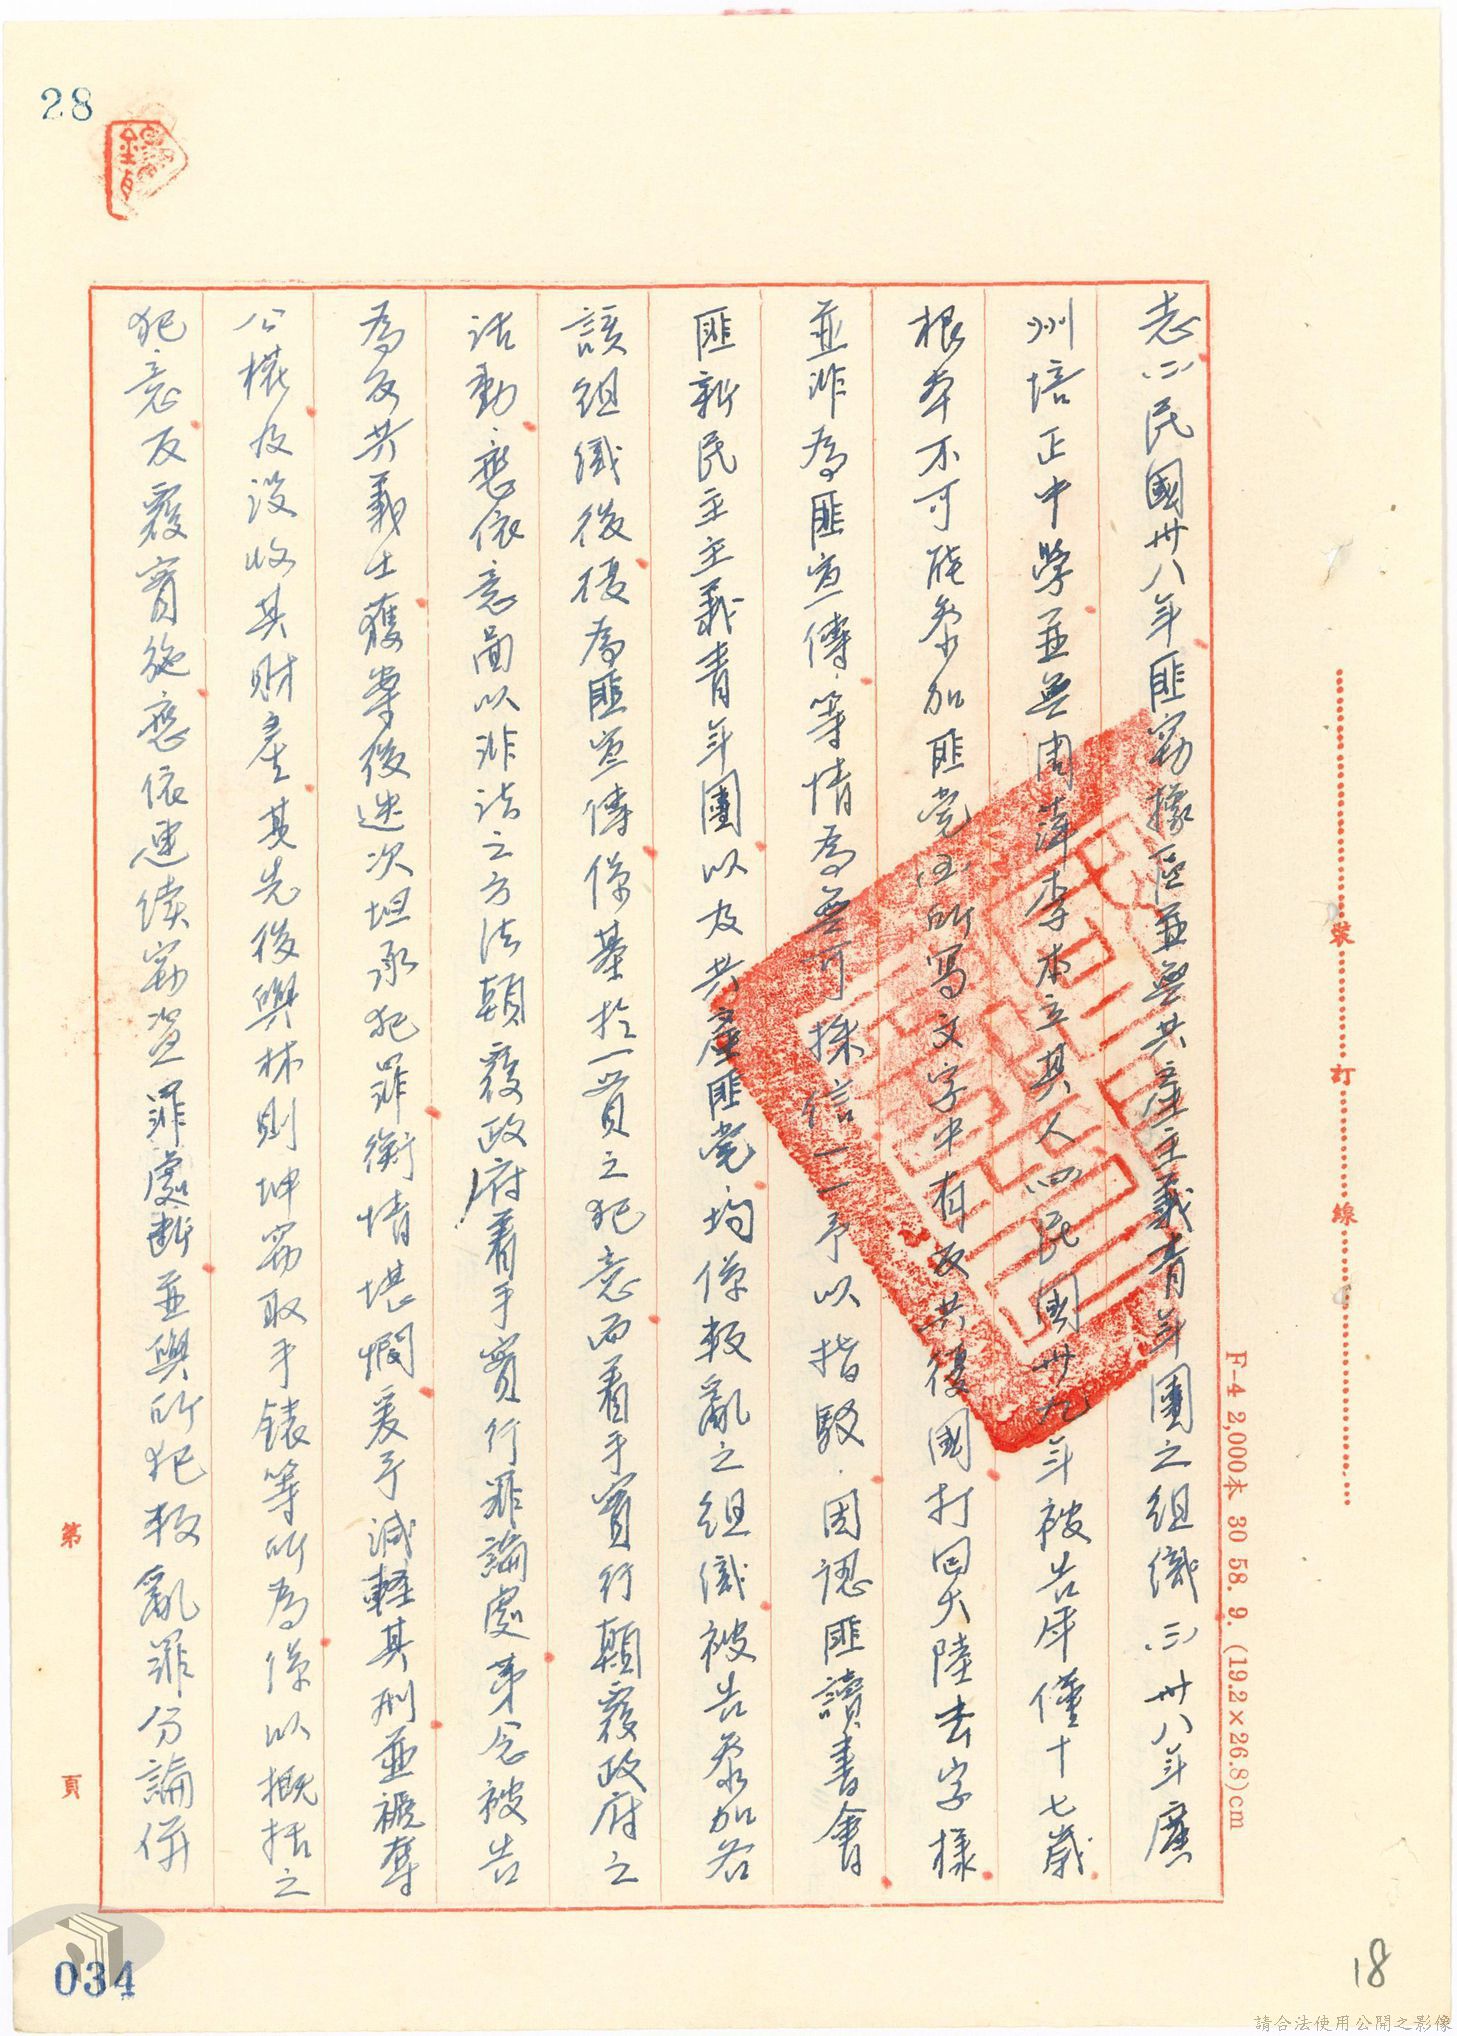 28
志㈡民國卅八年匪竊據區並無共產主義青年團之組織㈢卅八年廣
州培正中學並無周萍李本立其人㈣民國卅九年被告年僅十七歲
根本不可能參加匪党㈤所写文字中有反共復國打回大陸去字樣
並非為匪宣傳.等情為無可採信一一予以指駁.因認匪讀書會
匪新民主主義青年團以及共產匪党均係叛亂之組織被告參加各
該組織後復為匪宣傳係基於一貫之犯意而着手實行顛覆政府之
活動.應依意圖以非法之方法顛覆政府着手實行罪論處第念被告
為反共義士獲案後迭次坦承犯罪衡情堪憫爰予減輕其刑並褫奪
公權及沒收其財產其先後與林則坤竊取手錶等所為係以概括之
犯意反覆實施應依連續竊盜罪處斷並與所犯叛亂罪分論併
裝 訂 線
F-4 2,000本 30 58. 9. (19.2×26.8)cm
第 頁
034
18
請合法使用公開之影像